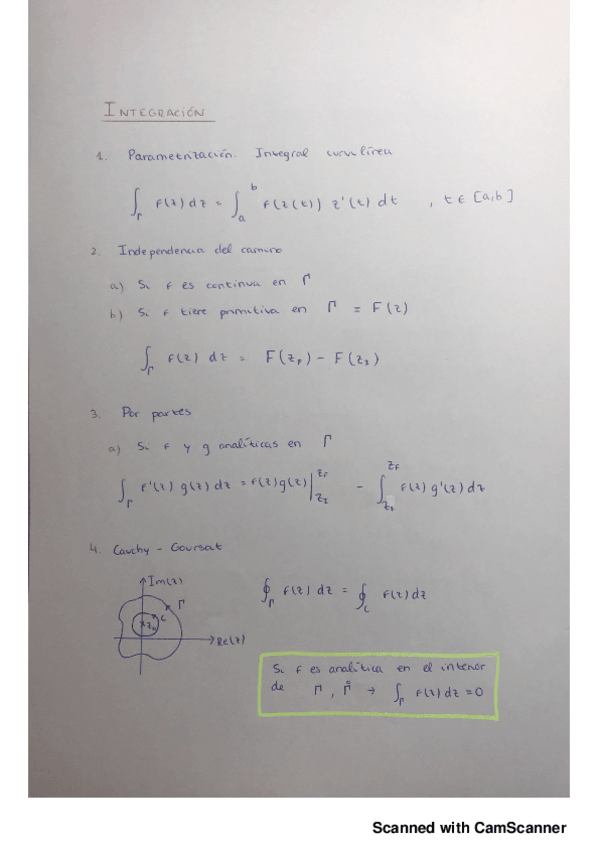 INTEGRACIÓN
1. Parametrización. Integral curvilínea
∫_Γ f(z) dz = ∫_a^b f(z(t)) z'(t) dt , t ∈ [a,b]
2. Independencia del camino
a) Si f es continua en Γ
b) Si f tiene primitiva en Γ = F(z)
∫_Γ f(z) dz = F(z_F) - F(z_I)
3. Por partes
a) Si f y g analíticas en Γ
∫_Γ f'(z) g(z) dz = f(z)g(z) |_{z_I}^{z_F} - ∫_{z_I}^{z_F} f(z) g'(z) dz
4. Cauchy - Goursat
Im(z)
Γ
C
z₀
Re(z)
∮_Γ f(z) dz = ∮_C f(z) dz
Si f es analítica en el interior
de Γ, Γ̊ → ∫_Γ f(z) dz = 0
Scanned with CamScanner